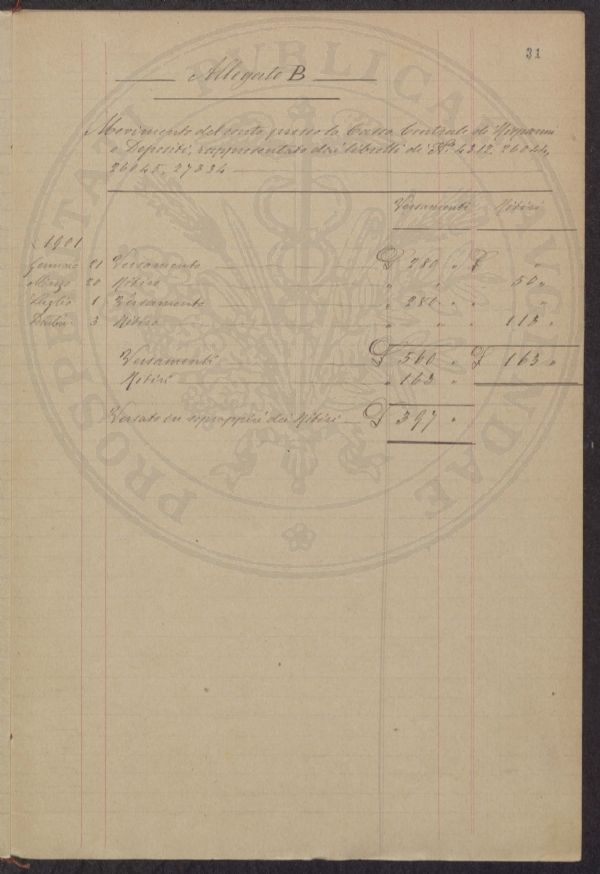 31
Allegato B
Movimento del conto presso la Cassa Centrale di Risparmi
e Depositi, rappresentato dai libretti di Nº 4312, 26044,
26045, 27334
Versamenti Ritiri
1901
Gennaio 21 Versamento £ 280 " £ "
Marzo 20 Ritiro " " " 50 "
Luglio 1 Versamento " 280 " " "
Dicbre 3 Ritiro " " " 113 "
Versamenti £ 560 " £ 163 "
Ritiri " 163 "
Versato in soprappiù dei Ritiri £ 397 "
PROSPERITATI PUBLICAE AUGENDAE